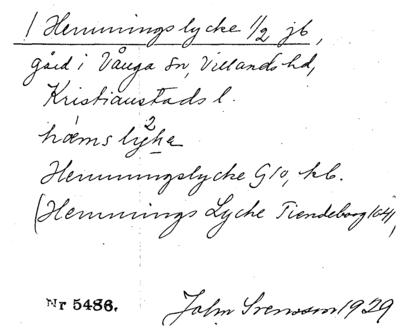 / Hemmingslycke 1/2 jb,
gård i Vånga sn, Villands hd,
Kristianstads l.
hæmslyka
2
Hemmingslycke G10, kb.
(Hemmings Lycke Tiendeborg 1641),
Nr 5486.
John Svensson 1929